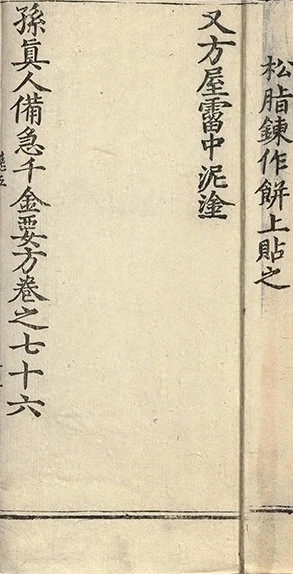 松脂鍊作餅上貼之
又方屋霤中泥塗
孫眞人備急千金要方卷之七十六